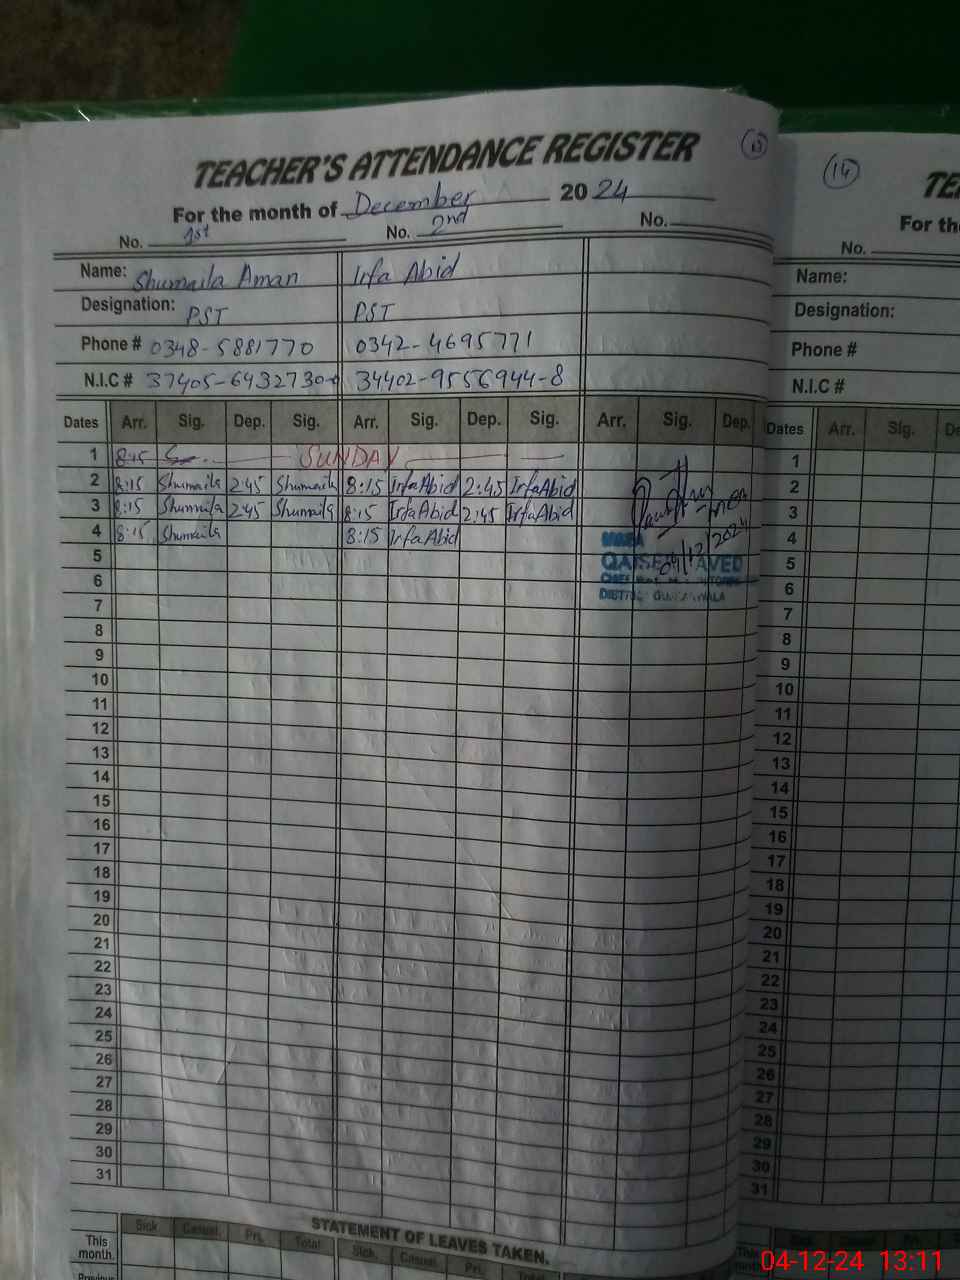 TEACHER'S ATTENDANCE REGISTER
13
For the month of December 2024
No. 1st No. 2nd No.
Name: Shumaila Aman Irfa Abid
Designation: PST PST
Phone # 0348-5881770 0342-4695771
N.I.C # 37405-6432730- 34402-9556944-8
Dates Arr. Sig. Dep. Sig. Arr. Sig. Dep. Sig. Arr. Sig. Dep.
1 8:15 S SUNDAY
2 8:15 Shumaila 2:45 Shumaila 8:15 IrfaAbid 2:45 IrfaAbid
3 8:15 Shumaila 2:45 Shumaila 8:15 IrfaAbid 2:45 IrfaAbid
4 8:15 Shumaila 8:15 IrfaAbid
04/12/2024
QAISER JAVED
DISTRICT
5
6
7
8
9
10
11
12
13
14
15
16
17
18
19
20
21
22
23
24
25
26
27
28
29
30
31
STATEMENT OF LEAVES TAKEN.
Sick Casual. Pri. Total Sick. Casual. Pri. Total
This month.
Previous
14
TE
For th
No.
Name:
Designation:
Phone #
N.I.C #
Dates Arr. Sig. De
1
2
3
4
5
6
7
8
9
10
11
12
13
14
15
16
17
18
19
20
21
22
23
24
25
26
27
28
29
30
31
04-12-24 13:11